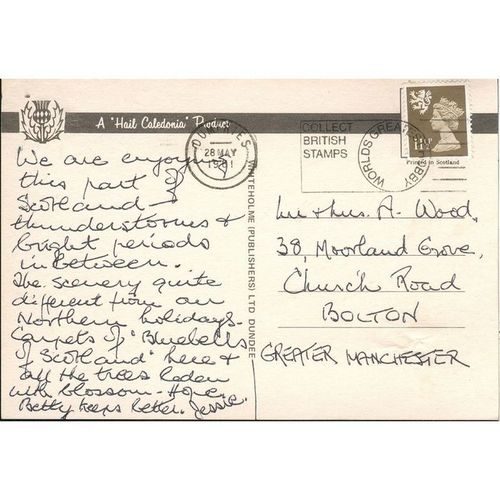 A "Hail Caledonia" Product
DUMFRIES
28 MAY
1981
COLLECT
BRITISH
STAMPS
WORLDS GREATEST HOBBY
11½P
Printed in Scotland
We are enjoying
this part of
Scotland -
thunderstorms &
bright periods
in between.
The scenery quite
different from our
Northern holidays.
Carpets of "Bluebells
of Scotland" here &
all the trees laden
with blossom - Hope
Betty keeps better. Jessie.
WHITEHOLME (PUBLISHERS) LTD DUNDEE
Mr & Mrs. A. Wood,
38, Moorland Grove,
Church Road
BOLTON
GREATER MANCHESTER